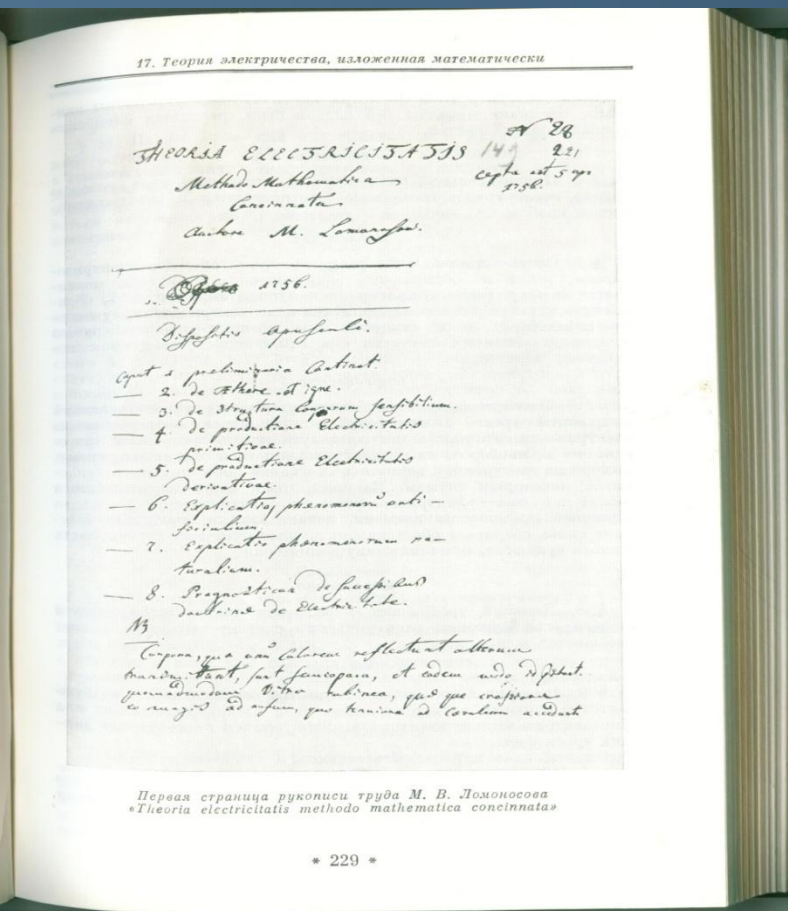 17. Теория электричества, изложенная математически
N 28
THEORIA ELECTRICITATIS 14 221
Methodo Mathematica cepta est 5 apr
Concinnata 1756.
Auctore M. Lomonosow.
1756.
Dispositio opusculi.
Caput 1 preliminaria Continet.
— 2. de Æthere et igne.
— 3. de Structura Corporum sensibilium.
— 4. De productione Electricitatis
primitivae.
— 5. de productione Electricitatis
derivativae.
— 6. Explicatio phænomenorū arti-
ficialium
— 7. Explicatio phænomenorum na-
turalium.
— 8. Prognosticon de successibus
doctrinæ de Electricitate.
NB
Corpora, quæ unū Colorem reflectunt alterum
transmittunt, sunt et eodem modo
quemadmodum Vitra rubinea, quæ
eo magis ad quo ad accedunt
Первая страница рукописи труда М. В. Ломоносова
«Theoria electricitatis methodo mathematica concinnata»
* 229 *